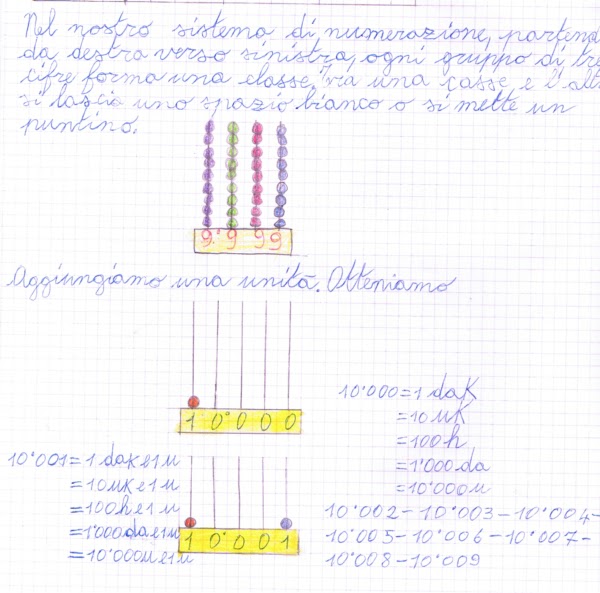 Nel nostro sistema di numerazione, partend
da destra verso sinistra, ogni gruppo di tre
cifre forma una classe, tra una casse e l'alt
si lascia uno spazio bianco o si mette un
puntino.
9˙9 9 9
Aggiungiamo una unità. Otteniamo
1 0˙0 0 0
10˙000=1 daK
=10 uK
=100 h
=1˙000 da
=10˙000 u
10˙001=1 daK e 1 u
=10 uK e 1 u
=100 h e 1 u
=1˙000 da e 1 u
=10˙000 u e 1 u
1 0˙0 0 1
10˙002-10˙003-10˙004-
10˙005-10˙006-10˙007-
10˙008-10˙009